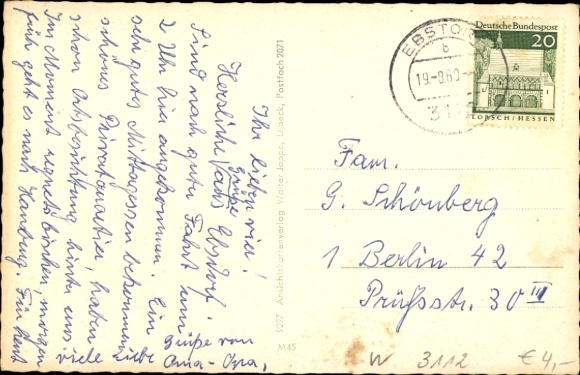 Ihr lieben vier!
Herzliche Grüße aus Ebsdorf.
Sind nach guter Fahrt um
2 Uhr hier angekommen. Ein
sehr gutes Mittagessen bekommen
schönes Privatquartier, haben
schon Ortsbesichtung hinter uns
Im Moment regnet's bischen, morgen
früh geht es nach Hamburg. Für heut
viele liebe Grüße von
Oma-Opa,
9227 Ansichtskartenverlag Walter Jappe, Postfach 2071
M 45
EBSTO
b
19-9.69
311
Deutsche Bundespost
20
LORSCH/HESSEN
Fam.
G. Schönberg
1 Berlin 42
Prüßstr. 30 III
W 3112 €4,-